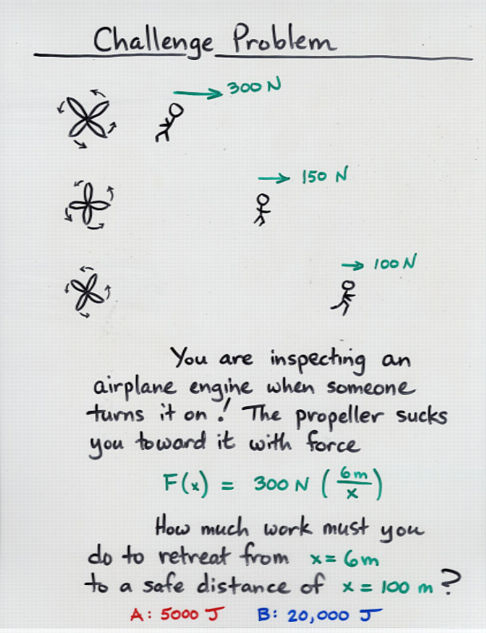 Challenge Problem
300 N
150 N
100 N
You are inspecting an
airplane engine when someone
turns it on! The propeller sucks
you toward it with force
F(x) = 300 N (6m/x)
How much work must you
do to retreat from x = 6m
to a safe distance of x = 100 m?
A: 5000 J B: 20,000 J